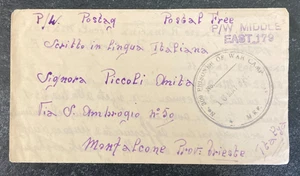 P/W Postag Postal Free
P/W MIDDLE
EAST 179
Scritto in lingua Italiana
Signora Piccoli Anita
Via S. Ambrogio Nº 50
Monfalcone Prov. Trieste
PRISONER OF WAR CAMP
M.E.F.